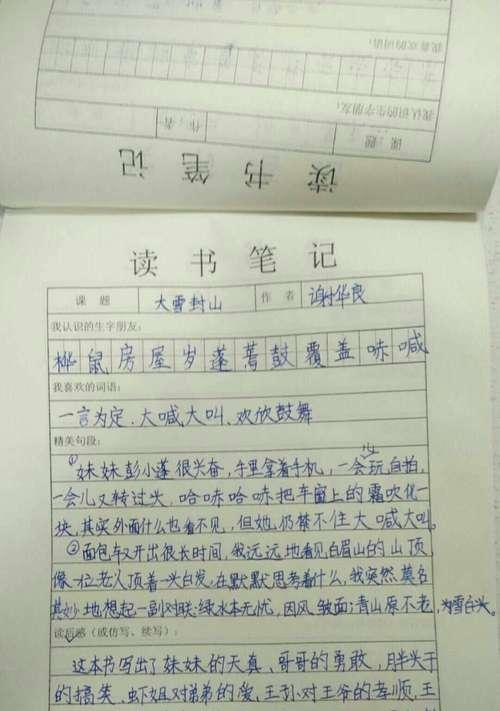 我喜欢的词语:
我认识的生字朋友:
课 题 作 者
读 书 笔 记
读 书 笔 记
课 题 大雪封山 作 者 谢华良
我认识的生字朋友:
桦 鼠 房 屋 岁 蓬 蒿 鼓 覆 盖 哧 喊
我喜欢的词语:
一言为定、大喊大叫、欢欣鼓舞
精美句段:
①妹妹彭小蓬很兴奋,手里拿着手机,一会儿玩自拍,
一会儿又转过头,哈哧哈哧把车窗上的霜吹化一
块,其实外面什么也看不见,但她仍禁不住大喊大叫。
②面包车又开出很长时间,我远远地看见白眉山的山顶
像一位老人顶着一头白发,在默默思考着什么,我突然莫名
其妙地想起一副对联:绿水本无忧,因风皱面;青山原不老,为雪白头。
读后感(或仿写、续写):
这本书写出了妹妹的天真、哥哥的勇敢,胖头于
的搞笑、虾姐对弟弟的爱,王孙对王爷的孝顺,王